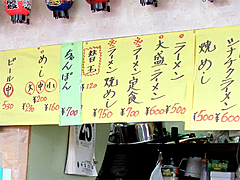 ツナチクラーメン
¥600
焼めし
¥500
ラーメン
¥500
大盛ラーメン
¥600
ラーメン定食
¥700
ラーメン焼めし
¥750
替玉
¥120
ちゃんぽん
¥700
めし
大 200
中
小 160
ビール
中 530